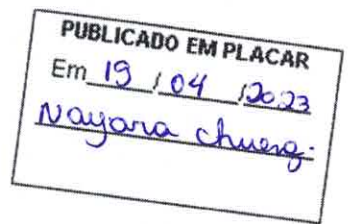 PUBLICADO EM PLACAR
Em 19 / 04 / 2023
Nayara